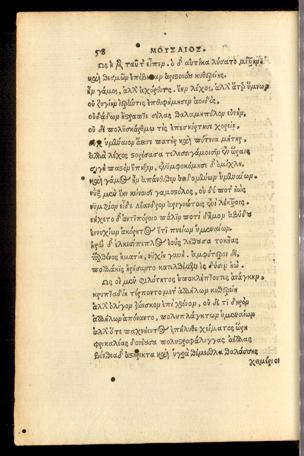 58 ΜΟΥΣΑΙΟΣ.
Ὣς ἡ μὲν ταῦτ' εἶπεν. ὁ δ' αὐτίκα λύσατο μίτρην,
καὶ θεσμῶν ἐπέβησαν ἀριστονόου κυθερείης.
ἦν γάμος, ἀλλ' ἀχόρευτος. ἔην λέχος, ἀλλ' ἄτερ ὕμνων
οὐ ζυγίην ἥρην τις ἐπευφήμησεν ἀοιδός,
οὐ δαΐδων ἤστραπτε σέλας θαλαμηπόλον εὐνήν,
οὐδὲ πολυσκάρθμῳ τις ἐπεσκίρτησε χορείῃ,
οὐχ ὑμέναιον ἄεισε πατὴρ καὶ πότνια μήτηρ.
ἀλλὰ λέχος στορέσασα τελεσσιγάμοισιν ἐν ὥραις
σιγὴ παστὸν ἔπηξεν, ἐνυμφοκόμησε δ' ὀμίχλη,
καὶ γάμος ἦν ἀπάνευθεν ἀειδομένων ὑμεναίων.
νὺξ μὲν ἔην κείνοισι γαμοστόλος, οὐ δέ ποτ' ἠὼς
νυμφίον εἶδε λέανδρον ἀριγνώτοις ἐνὶ λέκτροις.
νήχετο δ' ἀντιπόροιο πάλιν ποτὶ δῆμον ἀβύδου
ἐννυχίων ἀκόρητος ἔτι πνείων ὑμεναίων.
ἡρὼ δ' ἑλκεσίπεπλος ἑοὺς λήθουσα τοκῆας
παρθένος ἠματίη, νυχίη γυνή. ἀμφότεροι δὲ,
πολλάκις ἠρήσαντο κατελθέμεν ἐς δύσιν ἠῶ.
Ὣς οἱ μὲν φιλότητος ὑποκλέπτοντες ἀνάγκην
κρυπταδίη τέρποντο μετ' ἀλλήλων κυθερείῃ
ἀλλ' ὀλίγον ζώεσκον ἐπὶ χρόνον, οὐ δ' ἔτι δηρὸν
ἀλλήλων ἀπόναντο, πολυπλάγκτων ὑμεναίων
ἀλλ' ὅτε παχνήεντος ἐπήλυθε χείματος ὥρη
φρικαλέας δονέουσα πολυστροφάλιγγας ἀέλλας
βένθεα δ' ἀστήρικτα καὶ ὑγρὰ θέμεθλα θαλάσσης
χειμέριοι